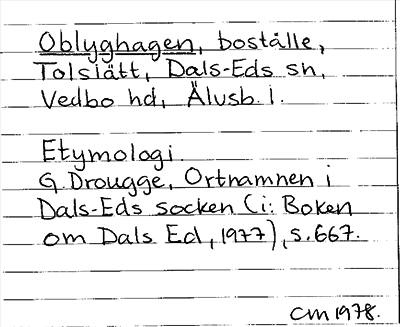 Oblyghagen, boställe,
Tolsiätt, Dals-Eds sn,
Vedbo hd, Älvsb. l.
Etymologi
G Drougge, Ortnamnen i
Dals-Eds socken (i: Boken
om Dals Ed, 1977), s. 667.
CM 1978.